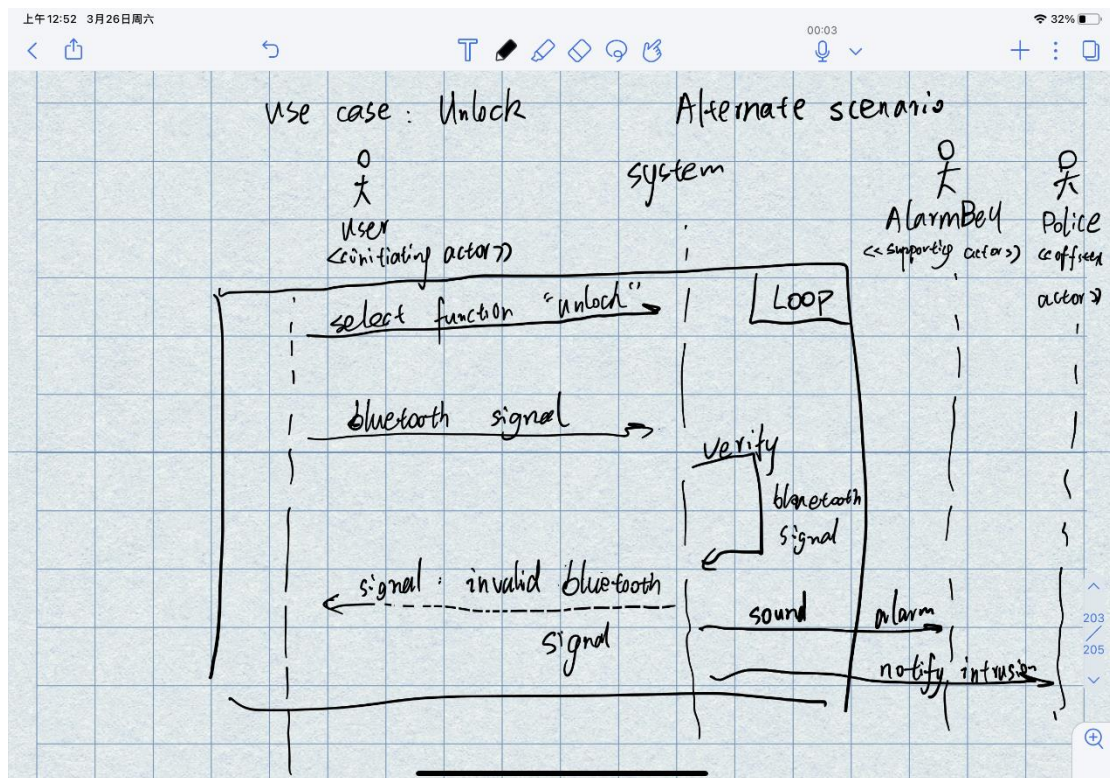 上午12:52 3月26日周六
32%
00:03
T
use case : Unlock
Alternate scenario
system
User
<<initiating actor>>
AlarmBell
<<supporting actors>>
Police
<<offstage
actor>>
LOOP
select function "unlock"
bluetooth signal
verify
bluetooth
signal
signal : invalid bluetooth
signal
sound alarm
notify intrusion
203
205